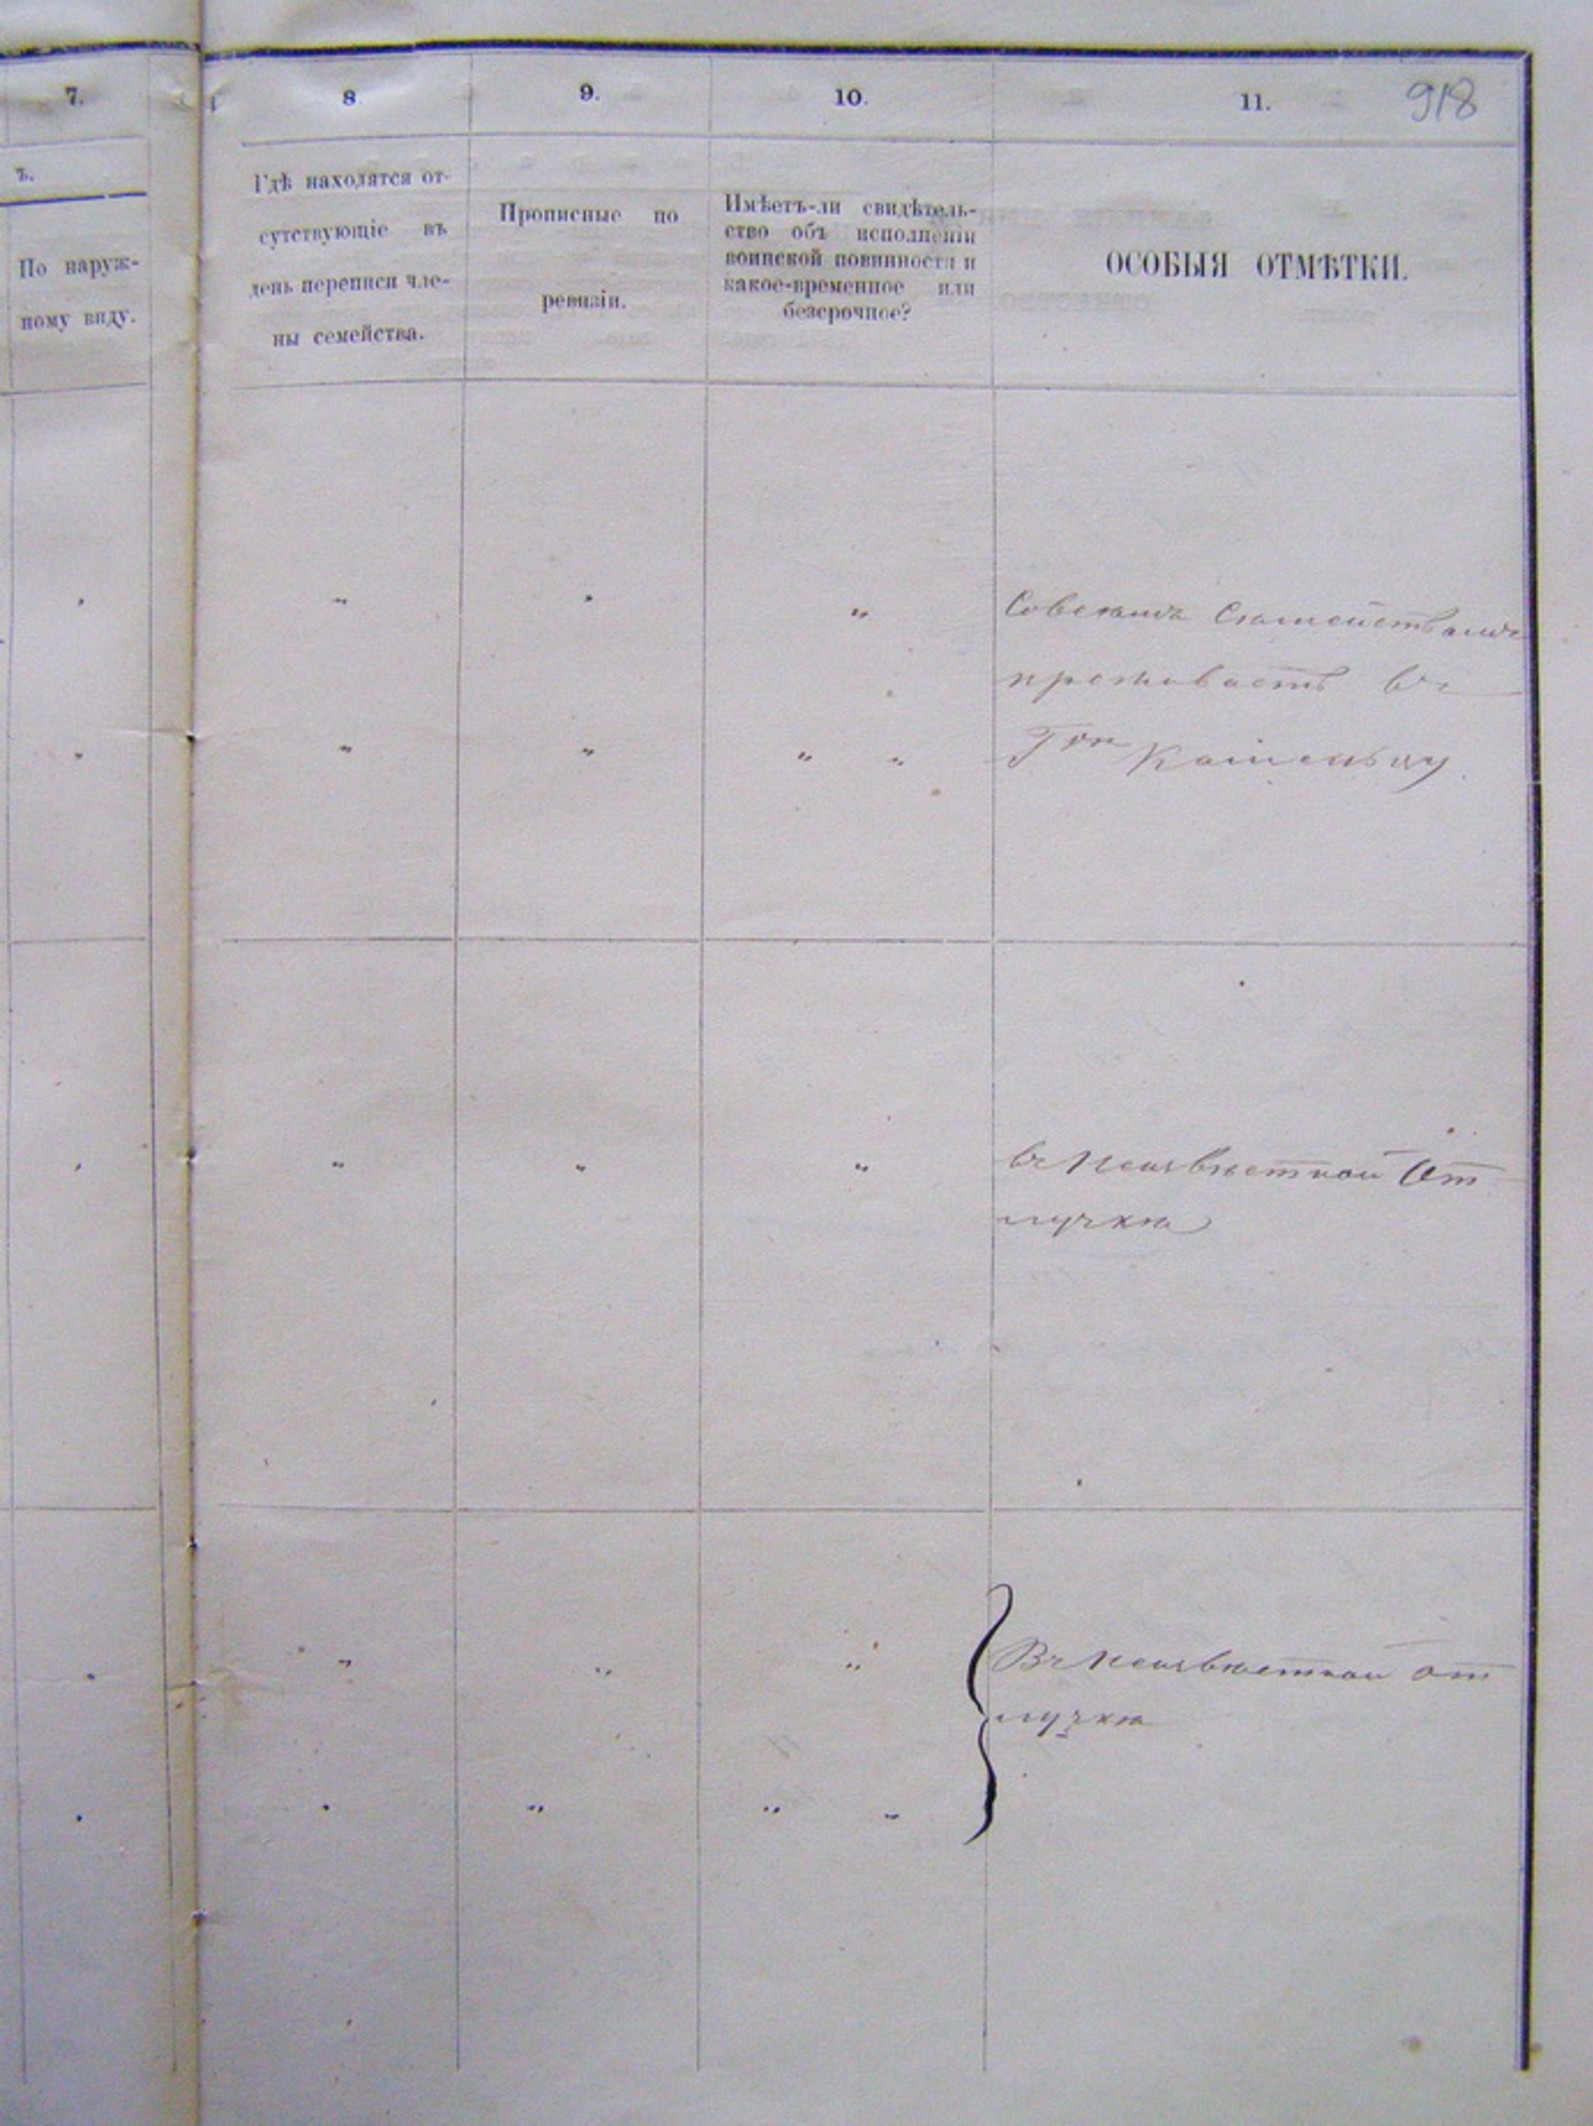 7.
8
9.
10.
11.
918
ъ.
По наруж-
ному виду.
Гдѣ находятся от-
сутствующіе въ
день переписи чле-
ны семейства.
Прописные по
ревизіи.
Имѣетъ-ли свидѣтель-
ство объ исполненіи
воинской повинности и
какое-временное или
безсрочное?
ОСОБЫЯ ОТМѢТКИ.
Совсемъ Сѣмействамъ
проживаетъ въ
Гор
въ Неизвѣстной От
лучкѣ
Въ Неизвѣстной от
лучкѣ